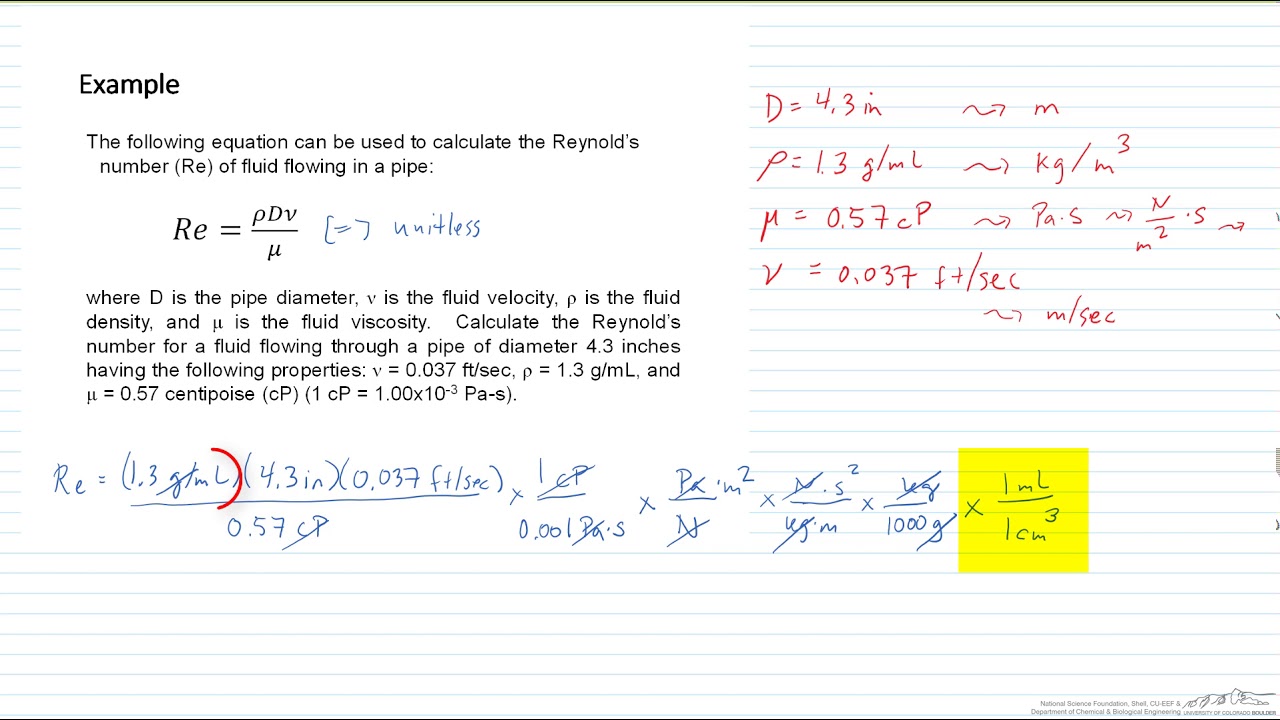 Example
The following equation can be used to calculate the Reynold's
number (Re) of fluid flowing in a pipe:
Re = ρDν / μ [=] unitless
where D is the pipe diameter, ν is the fluid velocity, ρ is the fluid
density, and μ is the fluid viscosity. Calculate the Reynold's
number for a fluid flowing through a pipe of diameter 4.3 inches
having the following properties: ν = 0.037 ft/sec, ρ = 1.3 g/mL, and
μ = 0.57 centipoise (cP) (1 cP = 1.00x10⁻³ Pa-s).
D = 4.3 in ⇝ m
ρ = 1.3 g/mL ⇝ kg/m³
μ = 0.57 cP ⇝ Pa·s ⇝ N/m² · s ⇝
ν = 0.037 ft/sec
⇝ m/sec
Re = (1.3 g/mL)(4.3 in)(0.037 ft/sec) / 0.57 cP × 1 cP / 0.001 Pa·s × Pa·m² / N × N·s² / kg·m × kg / 1000 g × 1 mL / 1 cm³
National Science Foundation, Shell, CU-EEF &
Department of Chemical & Biological Engineering UNIVERSITY OF COLORADO BOULDER